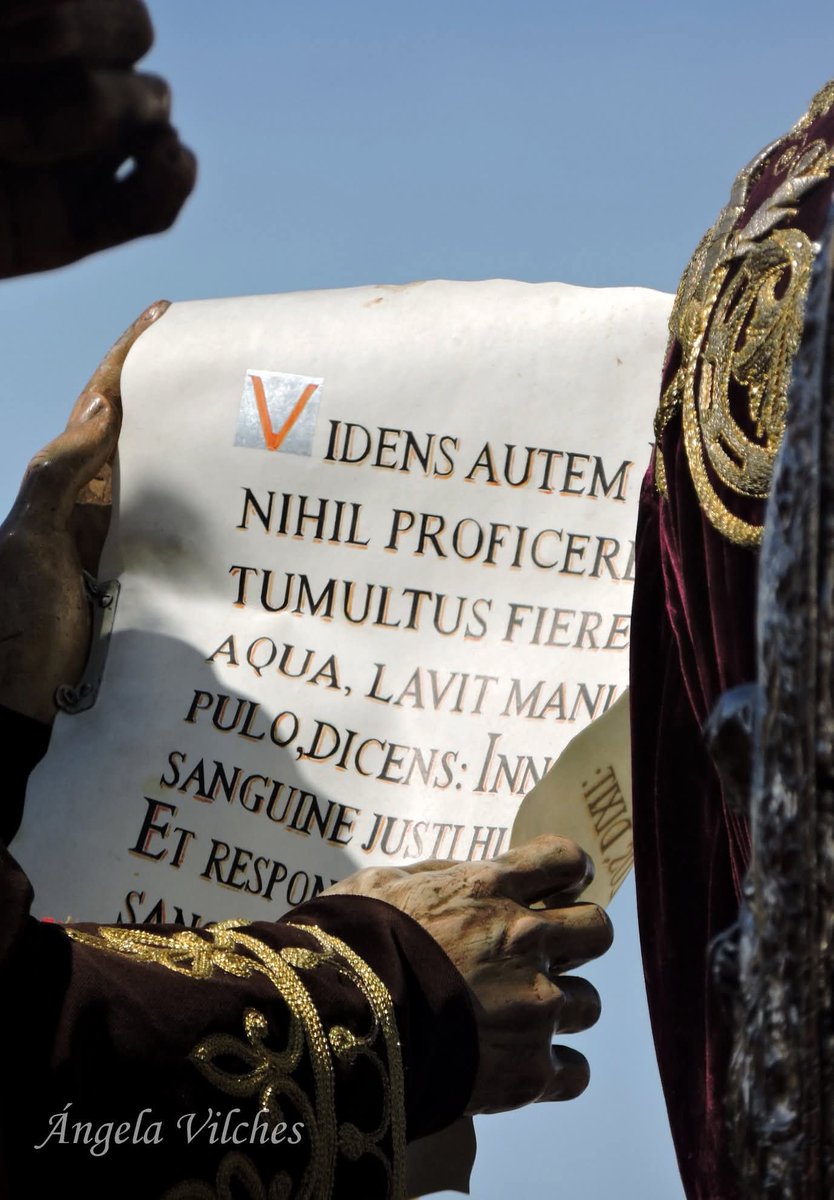 VIDENS AUTEM
NIHIL PROFICERE
TUMULTUS FIERE
AQUA, LAVIT MAN
PULO, DICENS: INN
SANGUINE JUSTI HU
ET RESPON
SANG
DIXIT:
Ángela Vilches